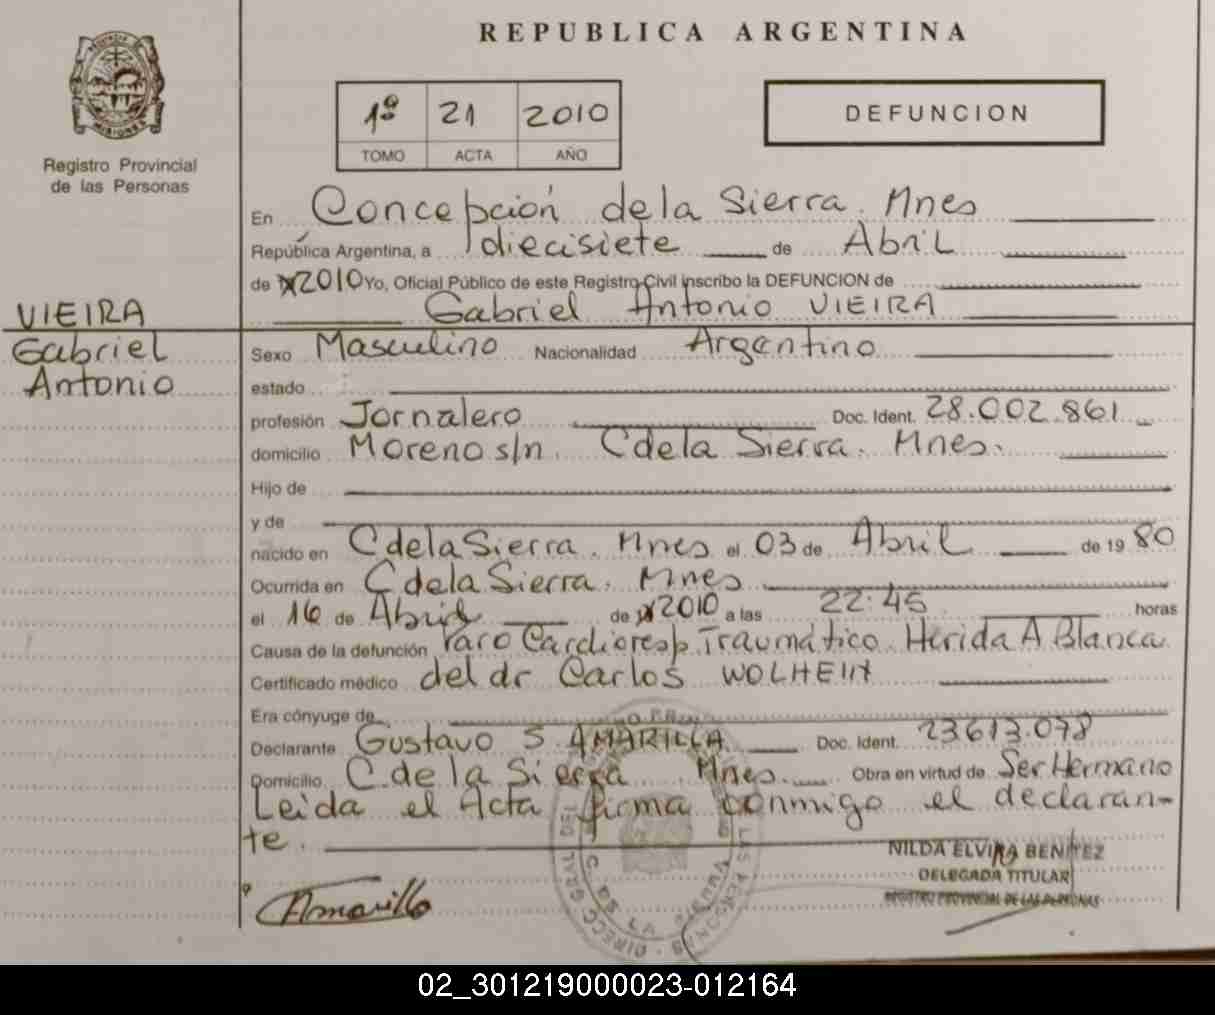 REPUBLICA ARGENTINA
1º 21 2010
TOMO ACTA AÑO
DEFUNCION
Registro Provincial
de las Personas
MISIONES
En Concepción de la Sierra. Mnes
República Argentina, a diecisiete de Abril
de 2010 Yo, Oficial Público de este Registro Civil inscribo la DEFUNCION de
Gabriel Antonio VIEIRA
VIEIRA
Gabriel
Antonio
Sexo Masculino Nacionalidad Argentino
estado
profesión Jornalero Doc. Ident. 28.002.861
domicilio Moreno s/n. C de la Sierra. Mnes.
Hijo de
y de
nacido en C de la Sierra. Mnes el 03 de Abril de 19 80
Ocurrida en C de la Sierra. Mnes
el 16 de Abril de 2010 a las 22:45 horas
Causa de la defunción Paro Cardioresp. Traumático. Herida A Blanca
Certificado médico del dr Carlos
Era cónyuge de
Declarante Gustavo S. AMARILLA Doc. Ident. 23613.078
Domicilio C. de la Sierra Mnes. Obra en virtud de Ser Hermano
Leida el Acta firma conmigo el declaran-
te.
NILDA ELVIRA BENITEZ
DELEGADA TITULAR
REGISTRO PROVINCIAL DE LAS PERSONAS
Amarilla
02_301219000023-012164